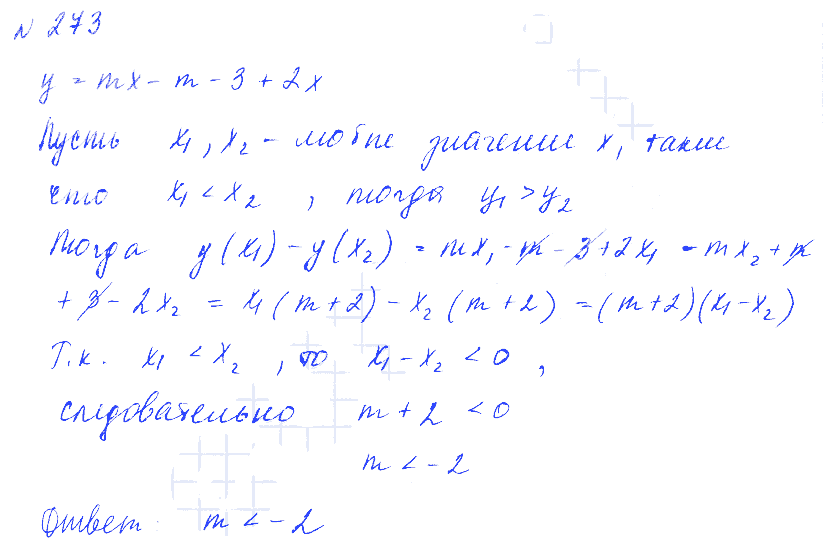 № 273
y = mx - m - 3 + 2x
Пусть x₁, x₂ - любые значения x, такие
что x₁ < x₂, тогда y₁ > y₂
Тогда y(x₁) - y(x₂) = mx₁ - m - 3 + 2x₁ - mx₂ + m
+ 3 - 2x₂ = x₁(m+2) - x₂(m+2) = (m+2)(x₁-x₂)
Т.к. x₁ < x₂, то x₁ - x₂ < 0,
следовательно m + 2 < 0
m < -2
Ответ m < -2